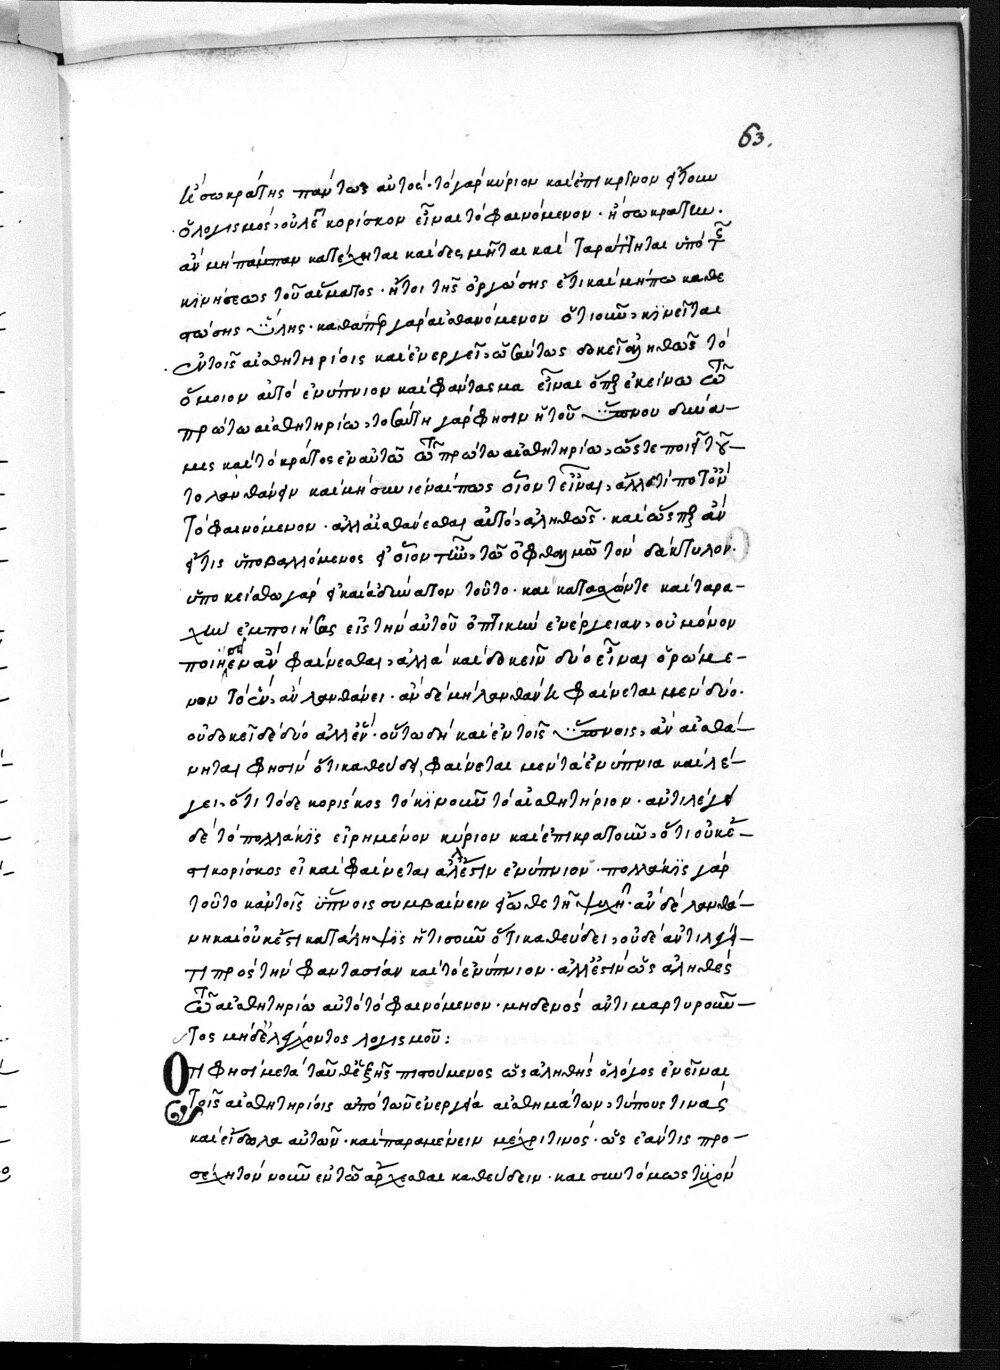 63.
ἢ σωκράτης πάντως αὐτός· τὸ γὰρ κύριον καὶ ἐπικρῖνον ἤτοι
ὁ λογισμός, οὐ λέγει κορίσκον εἶναι τὸ φαινόμενον· ἢ σωκράτην.
ἂν μὴ πάμπαν κατέχηται καὶ δεσμῆται καὶ ταράττηται ὑπὸ τῆς
κινήσεως τοῦ αἵματος· ἤτοι τῆς ὀργώσης ἔτι καὶ μήπω καθε
στώσης ὕλης· καθάπερ γὰρ αἰσθανόμενον ὅτι οὖν κινεῖται
ἐν τοῖς αἰσθητηρίοις καὶ ἐνεργεῖ, ὡσαύτως δοκεῖ ἀληθῶς τὸ
ὅμοιον αὐτὸ ἐνύπνιον καὶ φάντασμα εἶναι ὅπερ ἐκείνω ἐν τῶ
πρώτω αἰσθητηρίω, τοσαύτη γάρ φησιν ἡ τοῦ ὕπνου δύνα-
μις καὶ τὸ κράτος ἐν αὐτῶ τῶ πρώτω αἰσθητηρίω, ὥστε ποιεῖ τοῦ-
το λανθάνειν καὶ μὴ συνιέναι πως οἷόν τε εἶναι, ἀλλ' ἔτι ποτ' ὂν
τὸ φαινόμενον· ἀλλ' αἰσθάνεσθαι αὐτὸ, ἀληθῶς· καὶ ὥσπερ ἂν
εἴ τις ὑποβαλλόμενος τῶ ὀφθαλμῶ τὸν δάκτυλον·
ὑποκείσθω γὰρ εἰ καὶ ἀδύνατον τοῦτο· καὶ κατασχόντε καὶ ταρα-
χὴν ἐμποιήσας εἰς τὴν αὐτοῦ ὀπτικὴν ἐνέργειαν, οὐ μόνον
ποιήσειεν ἂν φαίνεσθαι, ἀλλὰ καὶ δοκεῖν δύο εἶναι ὁρώμε-
νον τὸ ἓν, ἂν λανθάνει· ἂν δὲ μὴ λανθάνη φαίνεται μὲν δύο·
οὐ δοκεῖ δὲ δύο ἀλλ' ἕν· οὕτω δὴ καὶ ἐν τοῖς ὕπνοις, ἂν αἰσθά-
νηται φησὶν ὅτι καθεύδει, φαίνεται μὲν τὰ ἐνύπνια καὶ λέ-
γει, ὅτι τόδε κορίσκος τὸ κινοῦν τὸ αἰσθητήριον· ἀντιλέγει
δὲ τὸ πολλάκις εἰρημένον κύριον καὶ ἐπικρατοῦν, ὅτι οὐκ ἔ-
στι κορίσκος εἰ καὶ φαίνεται ἀλλ' ἔστιν ἐνύπνιον· πολλάκις γὰρ
τοῦτο κἀν τοῖς ὕπνοις συμβαίνειν εἴωθε τῆ ψυχῆ· ἂν δὲ λανθά-
νη καὶ οὐκ ἔστι κατάληψις ἥτις οὖν ὅτι καθεύδει, οὐδὲ ἀντιλέγει-
τι πρὸς τὴν φαντασίαν καὶ τὸ ἐνύπνιον· ἀλλ' ἔστιν ὡς ἀληθὲς
τῶ αἰσθητηρίω αὐτὸ τὸ φαινόμενον· μηδενὸς ἀντιμαρτυροῦν-
τος μηδ' ἐλέγχοντος λογισμοῦ:
Ὅτι φησὶ μετὰ ταῦθ' ἑξῆς πιστούμενος ὡς ἀληθὴς ὁ λόγος ἐνεῖναι
τοῖς αἰσθητηρίοις ἀπὸ τῶν ἐνεργεία αἰσθημάτων, τύπους τινὰς
καὶ εἴδωλα αὐτῶν· καὶ παραμένειν μέχρι τινός· ὡς ἐάν τις προ-
σέχη τὸν νοῦν ἐν τῶ ἄρχεσθαι καθεύδειν· καὶ συντόμως τυχὸν